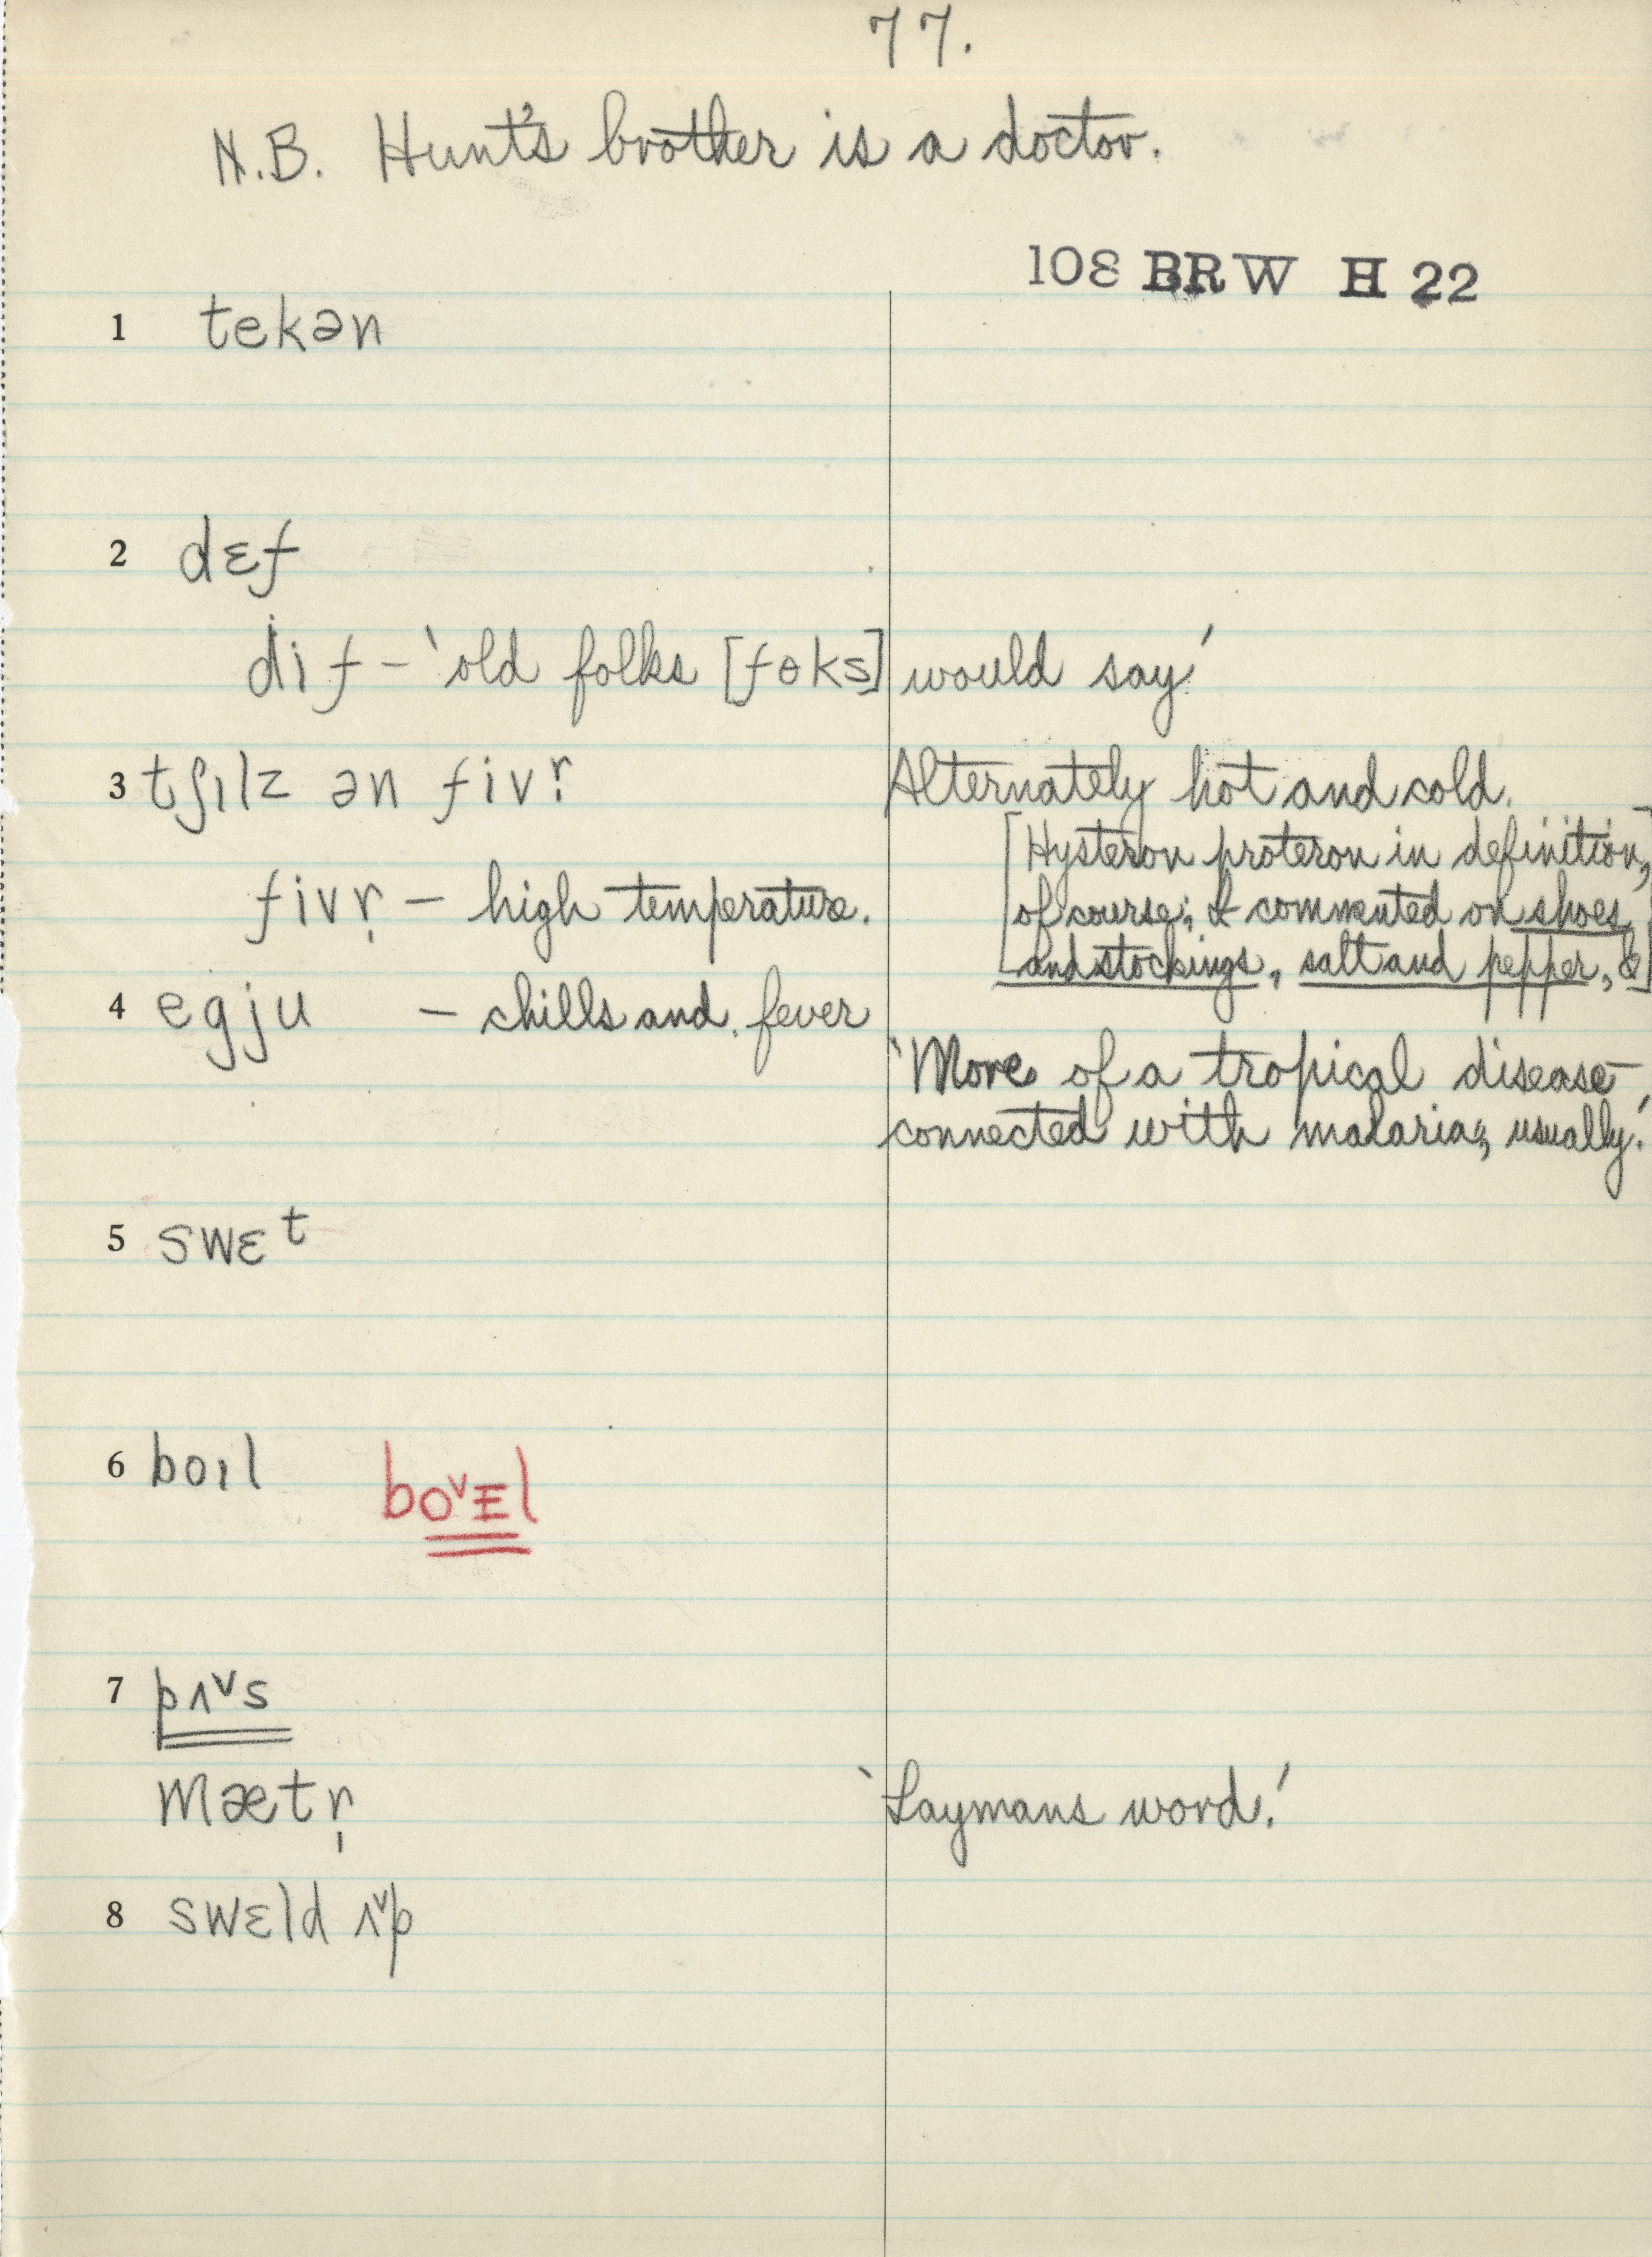 77.
N.B. Hunt's brother is a doctor.
108 BRW H 22
1 tekən
2 dɛf
dif – 'old folks [fɵks] would say'
3 tʃɪlz ən fivr̩ Alternately hot and cold.
[Hysteron proteron in definition,
fivr̩ – high temperature. of course; I commented on shoes
and stockings, salt and pepper, &]
4 egju – chills and fever
'More of a tropical disease –
connected with malaria, usually.'
5 swɛt
6 boɪl boᵛᴇl
7 pʌᵛs
mætr̩ 'Laymans word.'
8 swɛld ʌᵛp